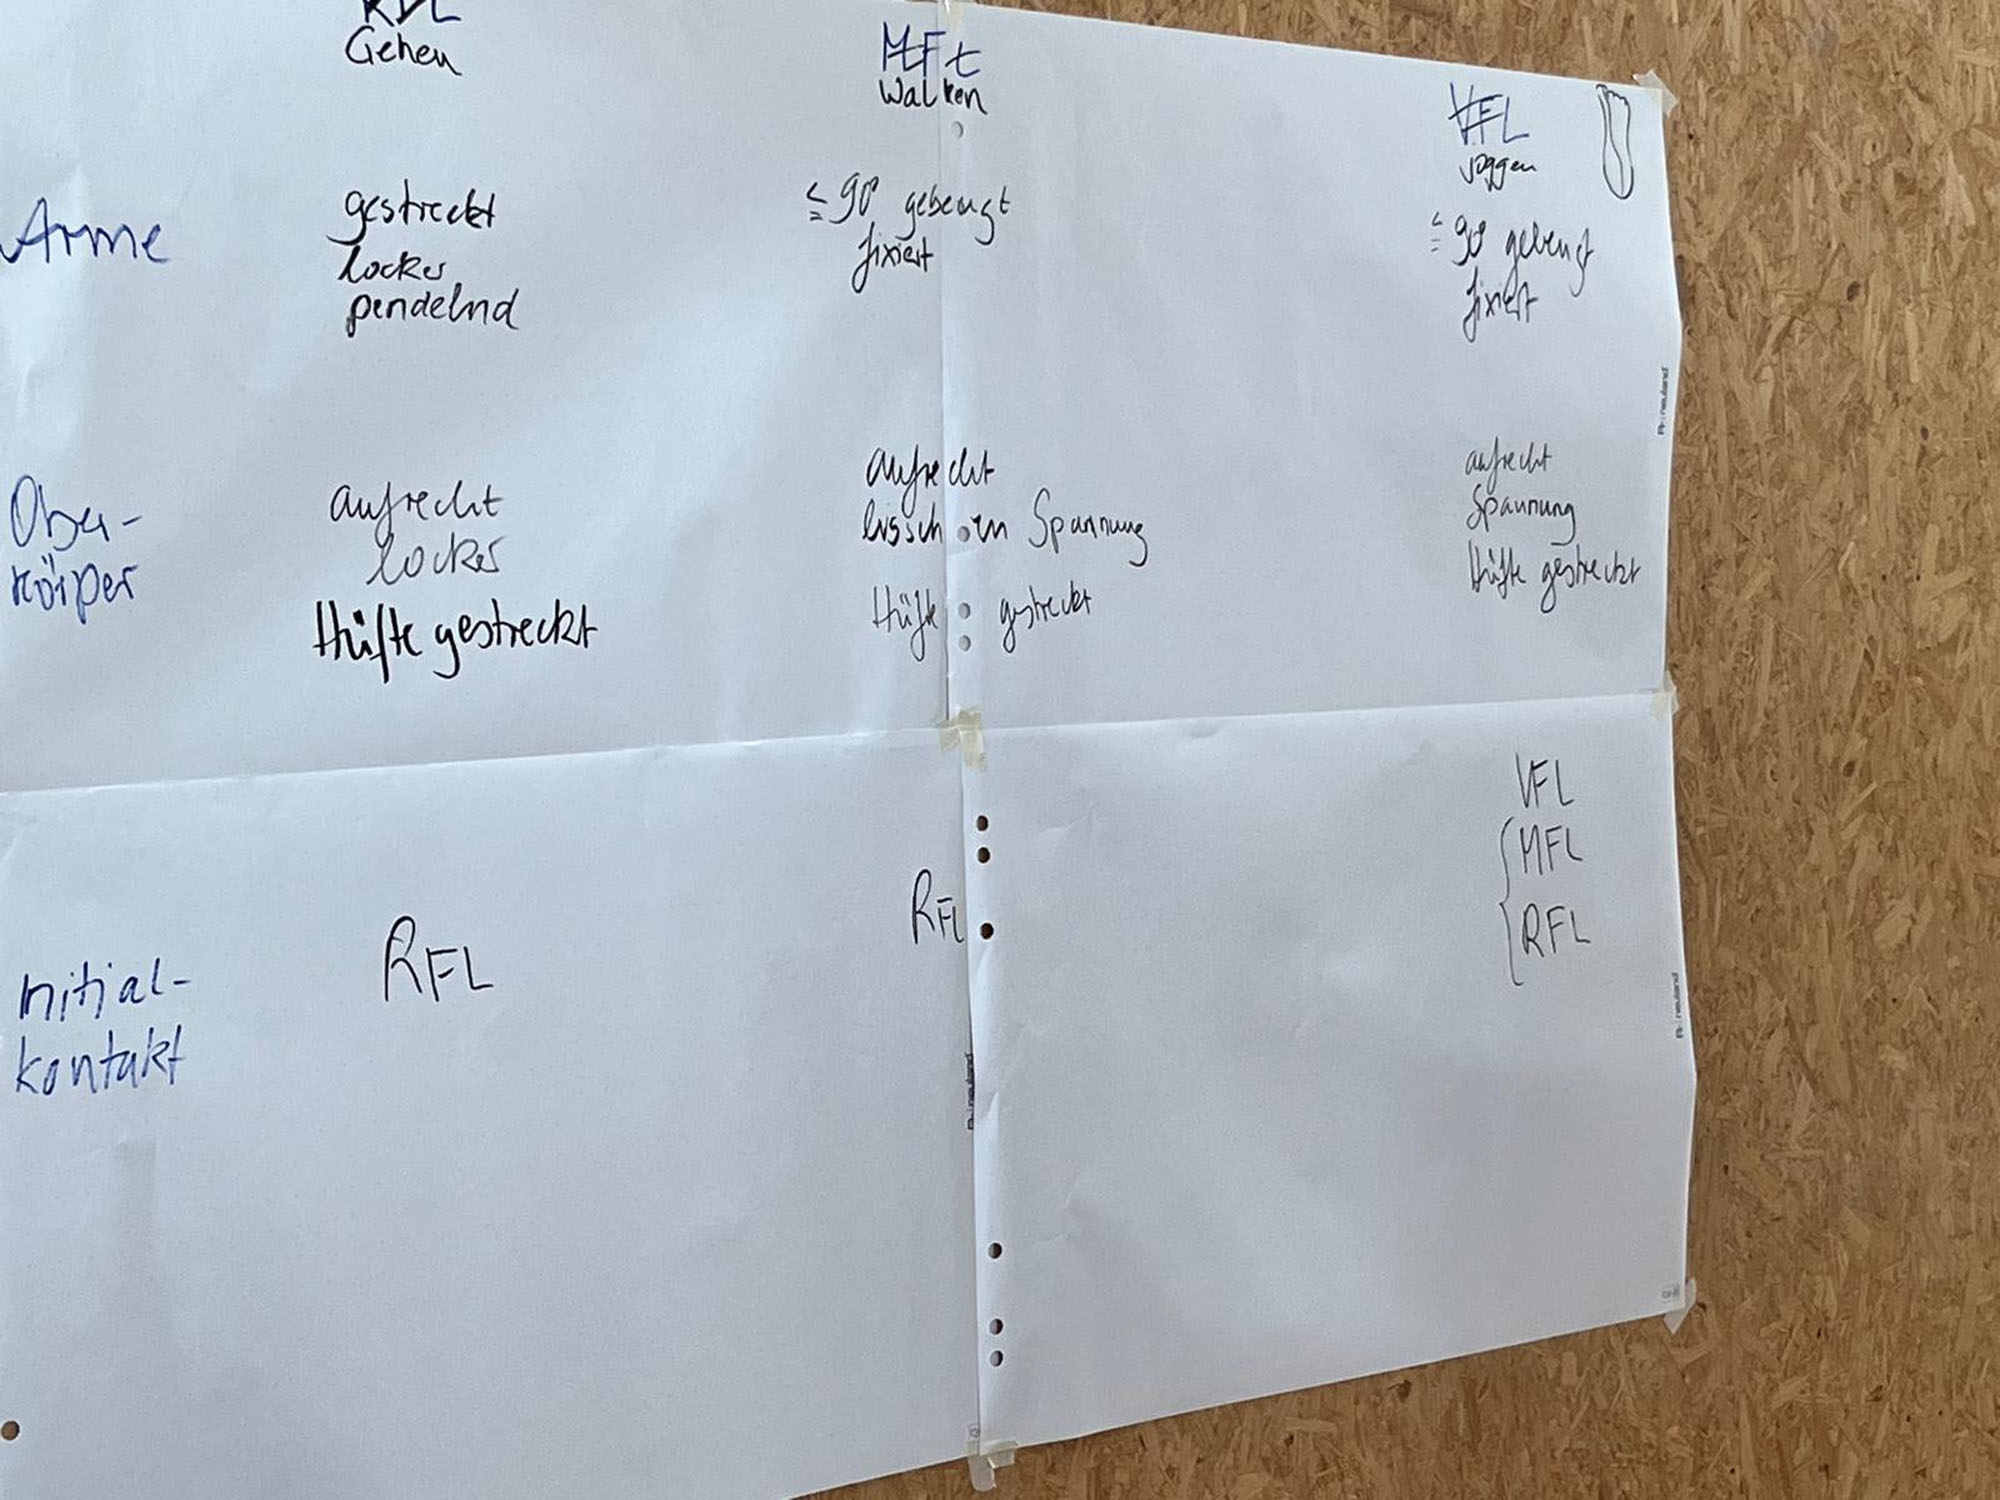 Gehen
MFL
Walken
VFL
joggen
Arme
gestreckt
locker
pendelnd
≤ 90° gebeugt
fixiert
≤ 90° gebeugt
fixiert
Ober-
körper
aufrecht
locker
Hüfte gestreckt
aufrecht
bisschen Spannung
Hüfte gestreckt
aufrecht
Spannung
Hüfte gestreckt
Initial-
kontakt
RFL
RFL
VFL
MFL
RFL
neuland
neuland
neuland